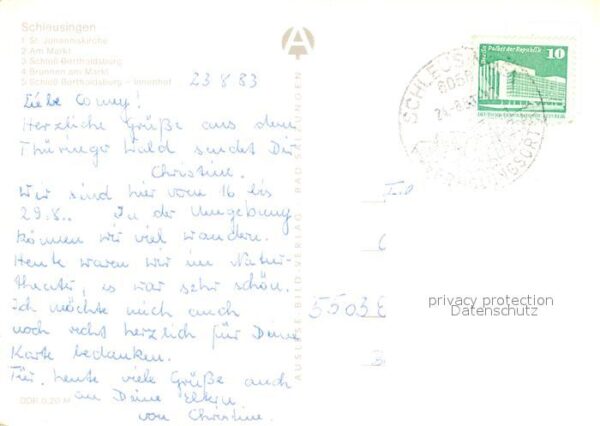 Schleusingen
1 St. Johanniskirche
2 Am Markt
3 Schloß Bertholdsburg
4 Brunnen am Markt
5 Schloß Bertholdsburg - Innenhof
23 8 83
Liebe Conny!
Herzliche Grüße aus dem
Thüringer Wald sendet Dir
Christine.
Wir sind hier vom 16 bis
29.8.. In der Umgebung
können wir viel wandern.
Heute waren wir im Natur-
theater, es war sehr schön.
Ich möchte mich auch
noch recht herzlich für Deine
Karte bedanken.
Für heute viele Grüße auch
an Deine Eltern
von Christine.
DDR 0,20 M
A
AUSLESE-BILD-VERLAG · BAD SALZUNGEN
Berlin Palast der Republik
10
DEUTSCHE DEMOKRATISCHE REPUBLIK
SCHLEUS
24.-8.
5503
privacy protection
Datenschutz